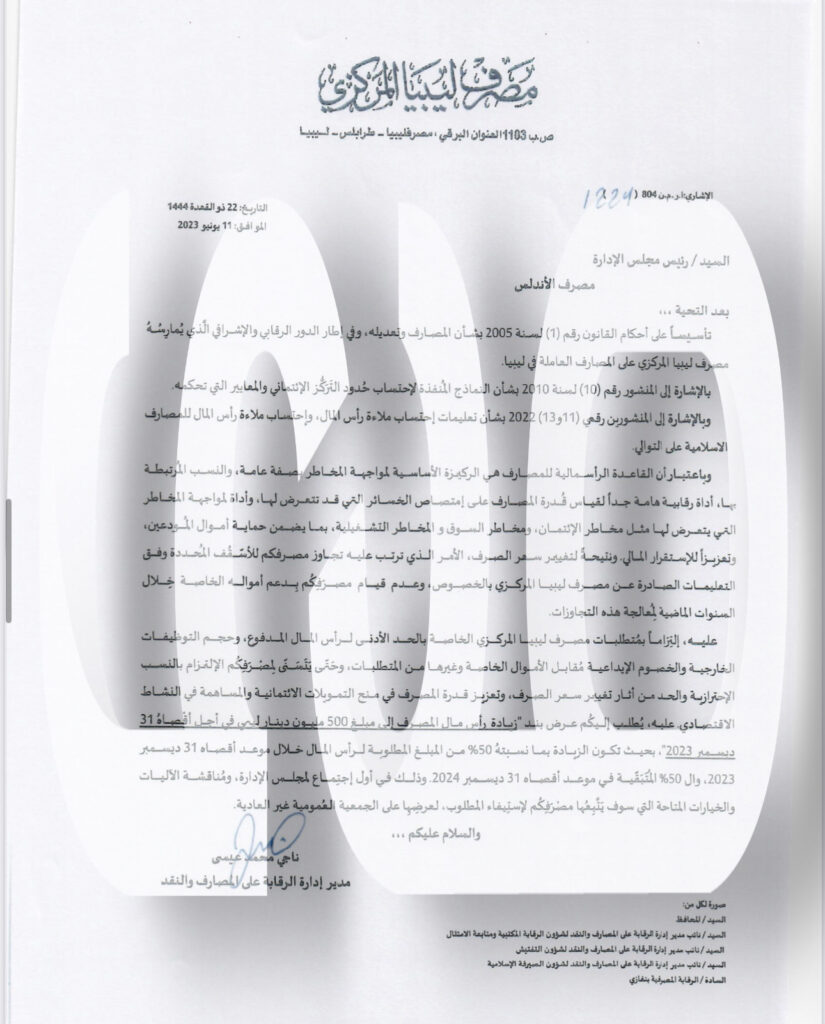 مصرف ليبيا المركزي
ص.ب 1103 العنوان البرقي : مصرفليبيا – طرابلس – ليبيا
الإشاري: ا.ر.م.ن 804 (1224)
التاريخ: 22 ذو القعدة 1444
الموافق: 11 يونيو 2023
السيد / رئيس مجلس الإدارة
مصرف الأندلس
بعد التحية ،،،
تأسيساً على أحكام القانون رقم (1) لسنة 2005 بشأن المصارف وتعديله، وفي إطار الدور الرقابي والإشرافي الَّذي يُمارِسُهُ
مصرف ليبيا المركزي على المصارف العاملة في ليبيا.
بالإشارة إلى المنشور رقم (10) لسنة 2010 بشأن النماذج المُنفذة لإحتساب حُدود التَرَكُز الإئتماني والمعايير التي تحكمه.
وبالإشارة إلى المنشورين رقمي (11و13) 2022 بشأن تعليمات إحتساب ملاءة رأس المال، وإحتساب ملاءة رأس المال للمصارف
الاسلامية على التوالي.
وباعتبار أن القاعدة الرأسمالية للمصارف هي الركيزة الأساسية لمواجهة المخاطر بصفة عامة، والنسب المُرتبطة
بها، أداة رقابية هامة جداً لقياس قُدرة المصارف على إمتصاص الخسائر التي قد تتعرض لها، وأداة لمواجهة المخاطر
التي يتعرض لها مثل مخاطر الإئتمان، ومخاطر السوق و المخاطر التشغيلية، بما يضمن حماية أموال المُودعين،
وتعزيزاً للإستقرار المالي. ونتيجةً لتغيير سعر الصرف، الأمر الذي ترتب عليه تجاوز مصرفكم للأسقُف المُحددة وفق
التعليمات الصادرة عن مصرف ليبيا المركزي بالخصوص، وعدم قيام مصرَفِكُم بِدعم أمواله الخاصة خِلال
السنوات الماضية لمُعالجة هذه التجاوزات.
عليه، إلتِزاماً بمُتطلبات مصرف ليبيا المركزي الخاصة بالحد الأدنى لرأس المال المدفوع، وحجم التوظيفات
الخارجية والخصوم الإيداعية مُقابل الأموال الخاصة وغيرها من المتطلبات، وحَتَّى يَتَسَنَى لِمصْرَفِكُم الإلتزام بالنسب
الإحترازية والحد من أثار تغيير سعر الصرف، وتعزيز قدرة المصرف في منح التمويلات الائتمانية والمساهمة في النشاط
الاقتصادي عليه، يُطلب إليكُم عرض بند "زيادة رأس مال المصرف إلى مبلغ 500 مليون دينار ليبي في أجل أقصاهُ 31
ديسمبر 2023"، بحيث تكون الزيادة بما نسبتهُ 50% من المبلغ المطلوبة لرأس المال خلال موعد أقصاه 31 ديسمبر
2023، وال 50% المُتَبَقّية في موعد أقصاه 31 ديسمبر 2024. وذلك في أول إجتِماع لمجلس الإدارة، ومُناقشة الآليات
والخيارات المتاحة التي سوف يَتَّبِعُها مصْرَفِكُم لإستِيفاء المطلوب، لعرضِها على الجمعية العُمومية غير العادية.
والسلام عليكم ،،،
ناجي محمد عيسى
مدير إدارة الرقابة على المصارف والنقد
صورة لكل من:
السيد / المحافظ
السيد / نائب مدير إدارة الرقابة على المصارف والنقد لشؤون الرقابة المكتبية ومتابعة الامتثال
السيد / نائب مدير إدارة الرقابة على المصارف والنقد لشؤون التفتيش
السيد / نائب مدير إدارة الرقابة على المصارف والنقد لشؤون الصيرفة الإسلامية
السادة / الرقابة المصرفية بنغازي